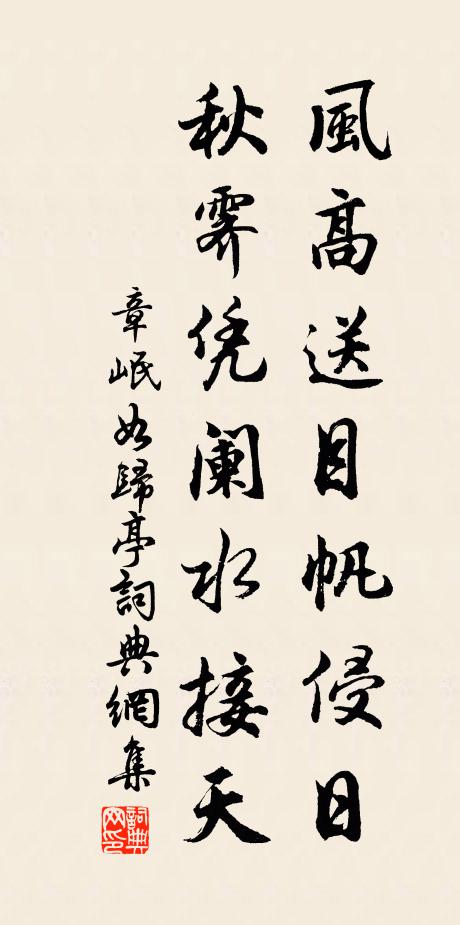 風高送目帆侵日
秋霽凭阑水接天
章岷如歸亭詞典網集
詞典網印